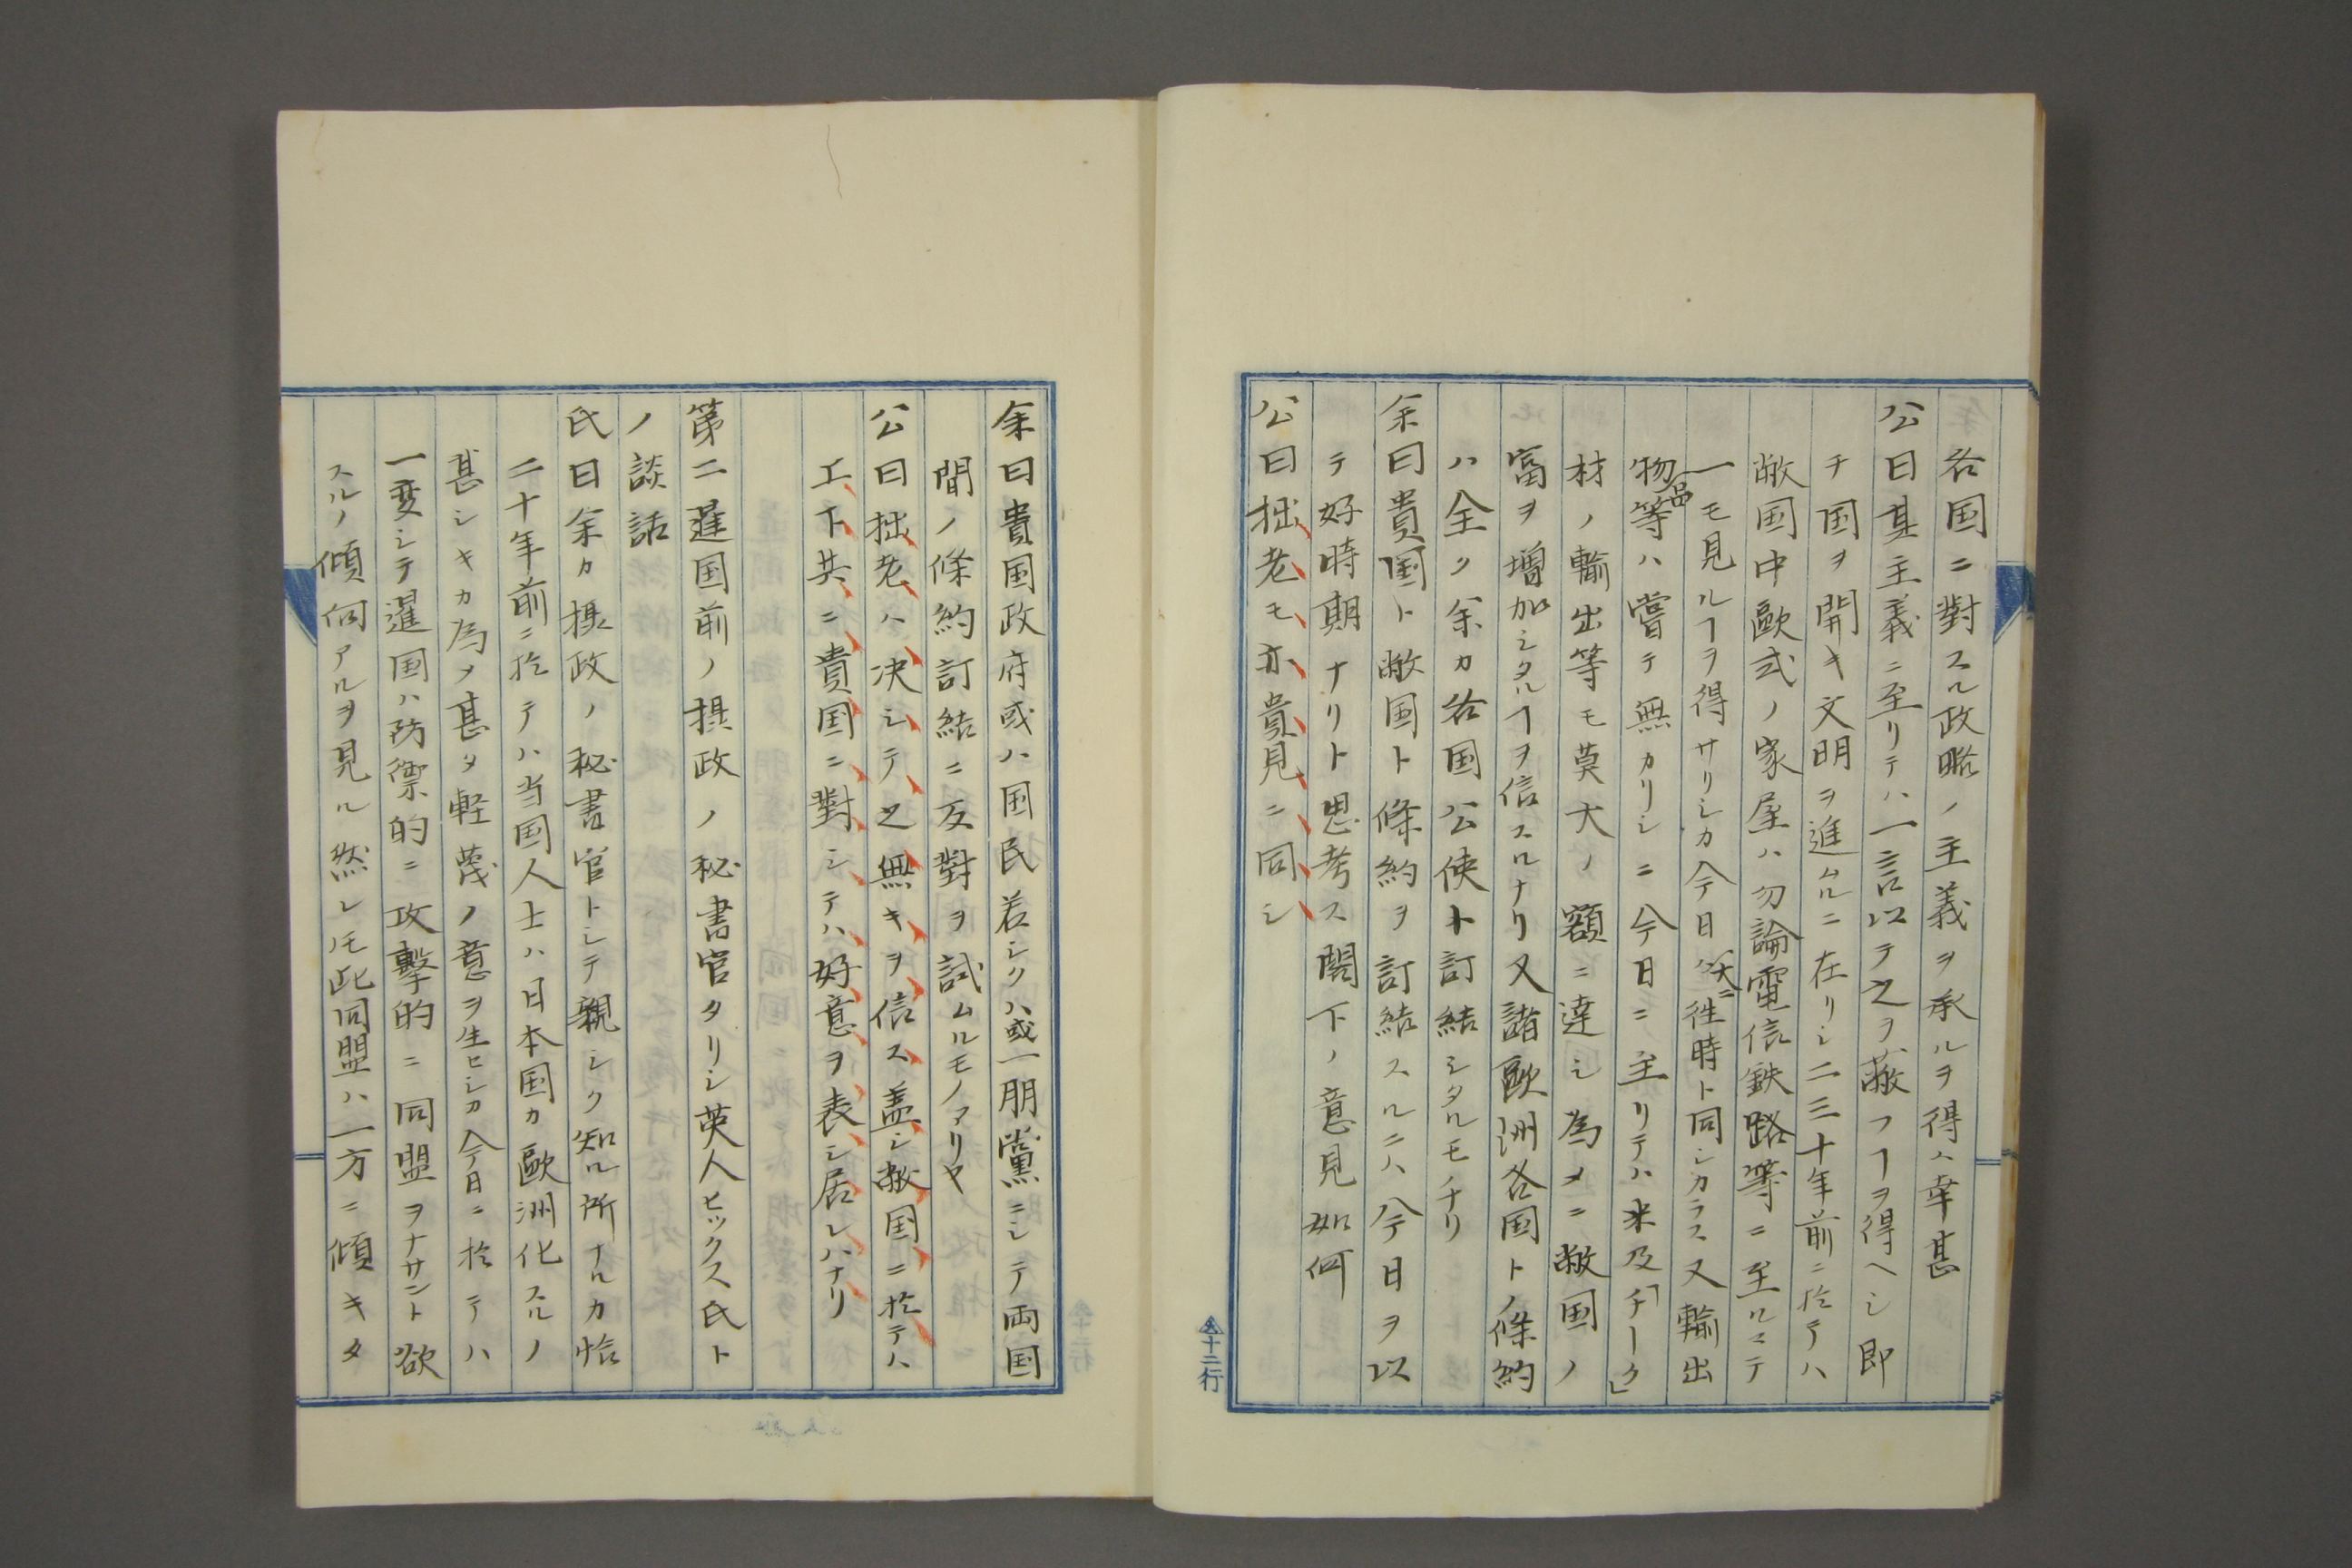 各国ニ對スル政略ノ主義ヲ承ルヲ得ハ幸甚
公曰其主義ニ至リテハ一言以テ之ヲ蔽フヿヲ得ヘシ即
チ国ヲ開キ文明ヲ進ムルニ在リシ二三十年前ニ於テハ
敝国中歐式ノ家屋ハ勿論電信鉄路等ニ至ルマテ
一モ見ルヿヲ得サリシカ今日ハ大ニ徃時ト同シカラス又輸出
物品等ハ嘗テ無カリシニ今日ニ至リテハ米及「チーク」
材ノ輸出等モ莫大ノ額ニ達シ為メニ敝国ノ
富ヲ増加シタルヿヲ信スルナリ又諸歐洲各国トノ條約
ハ全ク余カ各国公使ト訂結シタルモノナリ
余曰貴国ト敝国ト條約ヲ訂結スルニハ今日ヲ以
テ好時期ナリト思考ス閣下ノ意見如何
公曰拙老モ亦貴見ニ同シ
十二行
余曰貴国政府或ハ国民若シクハ或一朋黨ニシテ両国
間ノ條約訂結ニ反對ヲ試ムルモノアリヤ
公曰拙老ハ决シテ之無キヲ信ス盖シ敝国ニ於テハ
上下共ニ貴国ニ對シテハ好意ヲ表シ居レハナリ
第二暹国前ノ摂政ノ秘書官タリシ英人ヒックス氏ト
ノ談話
氏曰余カ摂政ノ秘書官トシテ親シク知ル所ナルカ恰
二十年前ニ於テハ当国人士ハ日本国カ歐洲化スルノ
甚シキカ為メ甚タ軽蔑ノ意ヲ生セシカ今日ニ於テハ
一変シテ暹国ハ防禦的ニ攻擊的ニ同盟ヲナサント欲
スルノ傾向アルヲ見ル然レ𪜈此同盟ハ一方ニ傾キタ